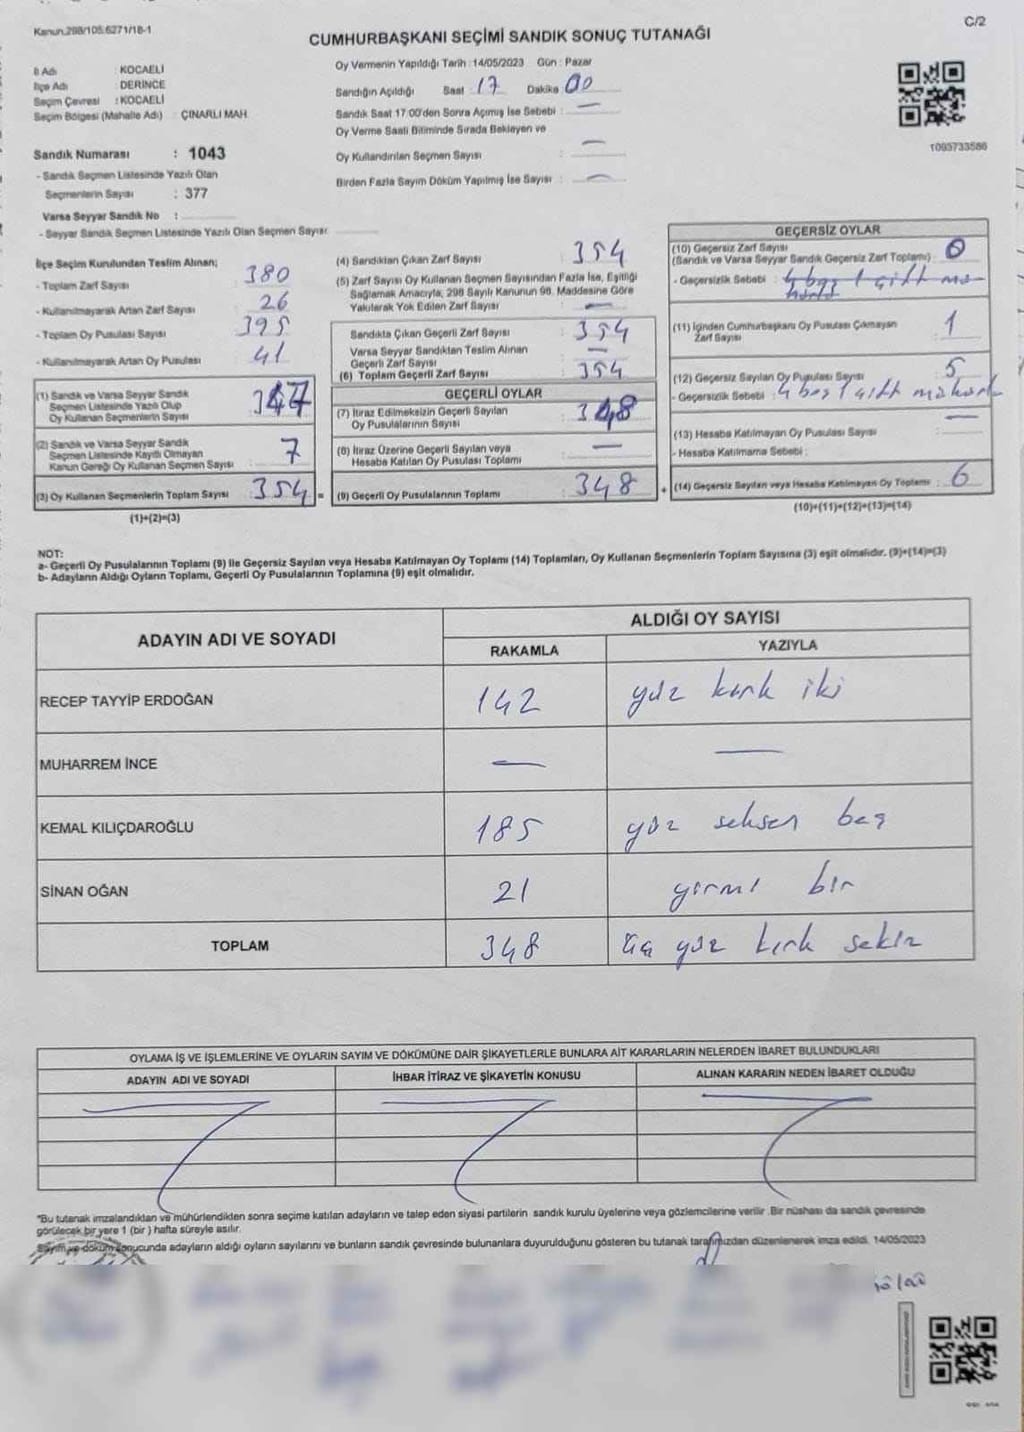 Kanun.298/105.6271/18-1
C/2
CUMHURBAŞKANI SEÇİMİ SANDIK SONUÇ TUTANAĞI
İl Adı : KOCAELİ
İlçe Adı : DERİNCE
Seçim Çevresi : KOCAELİ
Seçim Bölgesi (Mahalle Adı) : ÇINARLI MAH.
Sandık Numarası : 1043
- Sandık Seçmen Listesinde Yazılı Olan
Seçmenlerin Sayısı : 377
Varsa Seyyar Sandık No :
- Seyyar Sandık Seçmen Listesinde Yazılı Olan Seçmen Sayısı:
Oy Vermenin Yapıldığı Tarih : 14/05/2023 Gün : Pazar
Sandığın Açıldığı Saat 17 Dakika 00
Sandık Saat 17:00'den Sonra Açımış İse Sebebi : —
Oy Verme Saati Bitiminde Sırada Bekleyen ve
Oy Kullandırılan Seçmen Sayısı : —
Birden Fazla Sayım Döküm Yapılmış İse Sayısı : —
1093733586
İlçe Seçim Kurulundan Teslim Alınan;
- Toplam Zarf Sayısı 380
- Kullanılmayarak Artan Zarf Sayısı 26
- Toplam Oy Pusulası Sayısı 395
- Kullanılmayarak Artan Oy Pusulası 41
(1) Sandık ve Varsa Seyyar Sandık
Seçmen Listesinde Yazılı Olup
Oy Kullanan Seçmenlerin Sayısı 347
(2) Sandık ve Varsa Seyyar Sandık
Seçmen Listesinde Kayıtlı Olmayan
Kanun Gereği Oy Kullanan Seçmen Sayısı 7
(3) Oy Kullanan Seçmenlerin Toplam Sayısı 354 =
(1)+(2)=(3)
(4) Sandıktan Çıkan Zarf Sayısı 354
(5) Zarf Sayısı Oy Kullanan Seçmen Sayısından Fazla İse, Eşitliği
Sağlamak Amacıyla, 298 Sayılı Kanunun 98. Maddesine Göre
Yakılarak Yok Edilen Zarf Sayısı : —
Sandıkta Çıkan Geçerli Zarf Sayısı : 354
Varsa Seyyar Sandıktan Teslim Alınan
Geçerli Zarf Sayısı —
(6) Toplam Geçerli Zarf Sayısı : 354
GEÇERLİ OYLAR
(7) İtiraz Edilmeksizin Geçerli Sayılan
Oy Pusulalarının Sayısı 348
(8) İtiraz Üzerine Geçerli Sayılan veya
Hesaba Katılan Oy Pusulası Toplamı : —
(9) Geçerli Oy Pusulalarının Toplamı : 348 +
GEÇERSİZ OYLAR
(10) Geçersiz Zarf Sayısı
(Sandık ve Varsa Seyyar Sandık Geçersiz Zarf Toplamı) : 0
- Geçersizlik Sebebi : 4 boş 1 çift
(11) İçinden Cumhurbaşkanı Oy Pusulası Çıkmayan
Zarf Sayısı : 1
(12) Geçersiz Sayılan Oy Pusulası Sayısı 5
- Geçersizlik Sebebi : 4 boş 1 çift
(13) Hesaba Katılmayan Oy Pusulası Sayısı : —
- Hesaba Katılmama Sebebi :
(14) Geçersiz Sayılan veya Hesaba Katılmayan Oy Toplamı : 6
(10)+(11)+(12)+(13)=(14)
NOT:
a- Geçerli Oy Pusulalarının Toplamı (9) ile Geçersiz Sayılan veya Hesaba Katılmayan Oy Toplamı (14) Toplamları, Oy Kullanan Seçmenlerin Toplam Sayısına (3) eşit olmalıdır. (9)+(14)=(3)
b- Adayların Aldığı Oyların Toplamı, Geçerli Oy Pusulalarının Toplamına (9) eşit olmalıdır.
ADAYIN ADI VE SOYADI
ALDIĞI OY SAYISI
RAKAMLA YAZIYLA
RECEP TAYYİP ERDOĞAN 142 yüz kırk iki
MUHARREM İNCE — —
KEMAL KILIÇDAROĞLU 185 yüz seksen beş
SİNAN OĞAN 21 yirmi bir
TOPLAM 348 üç yüz kırk sekiz
OYLAMA İŞ VE İŞLEMLERİNE VE OYLARIN SAYIM VE DÖKÜMÜNE DAİR ŞİKAYETLERLE BUNLARA AİT KARARLARIN NELERDEN İBARET BULUNDUKLARI
ADAYIN ADI VE SOYADI İHBAR İTİRAZ VE ŞİKAYETİN KONUSU ALINAN KARARIN NEDEN İBARET OLDUĞU
"Bu tutanak imzalandıktan ve mühürlendikten sonra seçime katılan adayların ve talep eden siyasi partilerin sandık kurulu üyelerine veya gözlemcilerine verilir. Bir nüshası da sandık çevresinde
görülecek bir yere 1 (bir) hafta süreyle asılır.
Sayım ve döküm sonucunda adayların aldığı oyların sayılarını ve bunların sandık çevresinde bulunanlara duyurulduğunu gösteren bu tutanak tarafımızdan düzenlenerek imza edildi. 14/05/2023